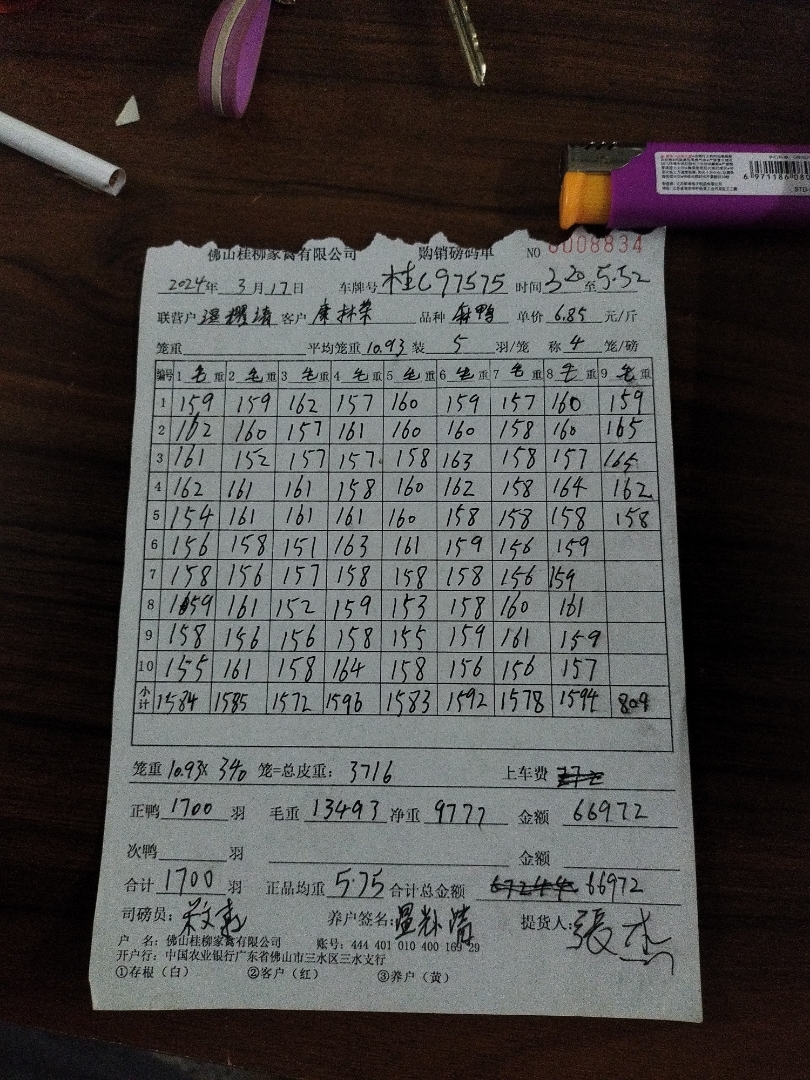 6 971186 080
佛山桂柳家禽有限公司 购销磅码单 NO 0008834
2024年 3月17日 车牌号 桂C97575 时间 3 20 至 5.52
联营户 客户 康林荣 品种 麻鸭 单价 6.85 元/斤
笼重 平均笼重 10.93 装 5 羽/笼 称 4 笼/磅
编号 1 毛重 2 毛重 3 毛重 4 毛重 5 毛重 6 毛重 7 毛重 8 毛重 9 毛重
1 159 159 162 157 160 159 157 160 159
2 162 160 157 161 160 160 158 160 165
3 161 152 157 157 158 163 158 157 165
4 162 161 161 158 160 162 158 164 162
5 154 161 161 161 160 158 158 158 158
6 156 158 151 163 161 159 156 159
7 158 156 157 158 158 158 156 159
8 159 161 152 159 153 158 160 161
9 158 156 156 158 155 159 161 159
10 155 161 158 164 158 156 156 157
小计 1584 1585 1572 1596 1583 1592 1578 1594 809
笼重 10.93× 340 笼=总皮重: 3716 上车费
正鸭 1700 羽 毛重 13493 净重 9777 金额 66972
次鸭 羽 金额
合计 1700 羽 正品均重 5.75 合计总金额 67244 66972
司磅员: 养户签名: 提货人: 張杰
户 名: 佛山桂柳家禽有限公司 账号: 444 401 010 400 169 29
开户行: 中国农业银行广东省佛山市三水区三水支行
①存根(白) ②客户(红) ③养户(黄)